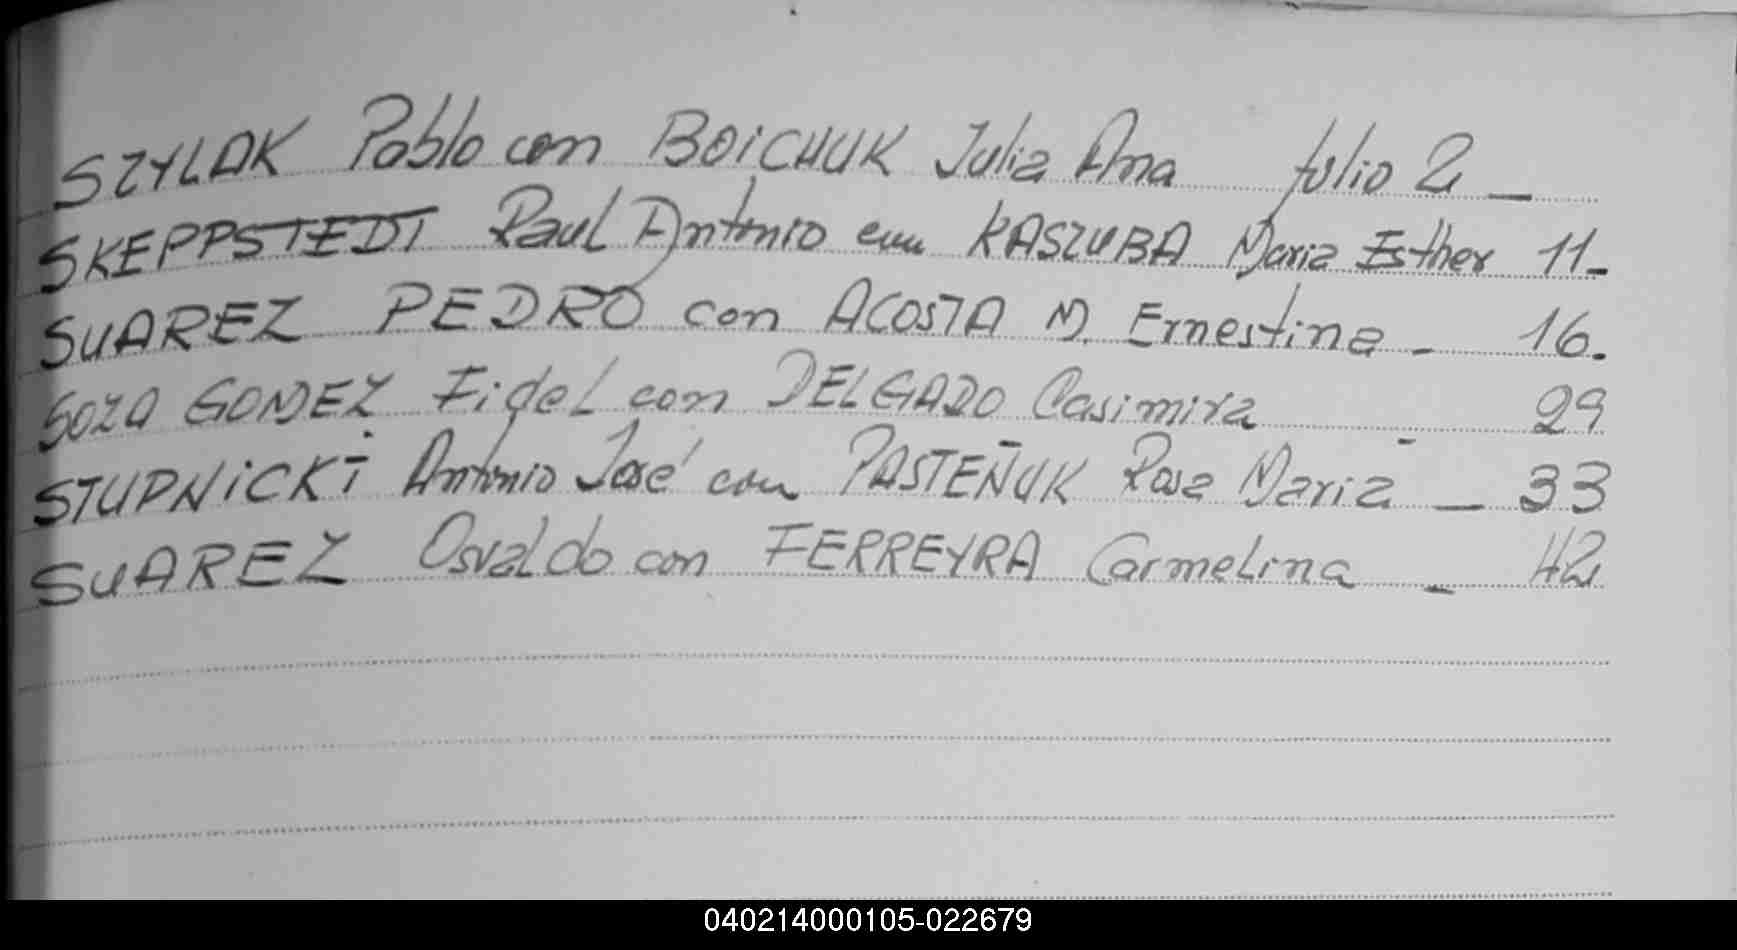 SZYLAK Pablo con BOiCHUK Julia Ana folio 2 —
SKEPPSTEDT Raul Antonio con KASZUBA Maria Esther 11-
SUAREZ PEDRO con ACOSTA M. Ernestina - 16.
SOZA GOMEZ Fidel con DELGADO Casimira - 29
STUPNiCKi Antonio José con PASTEÑUK Rosa Maria — 33
SUAREZ Osvaldo con FERREYRA Carmelina - 42
040214000105-022679